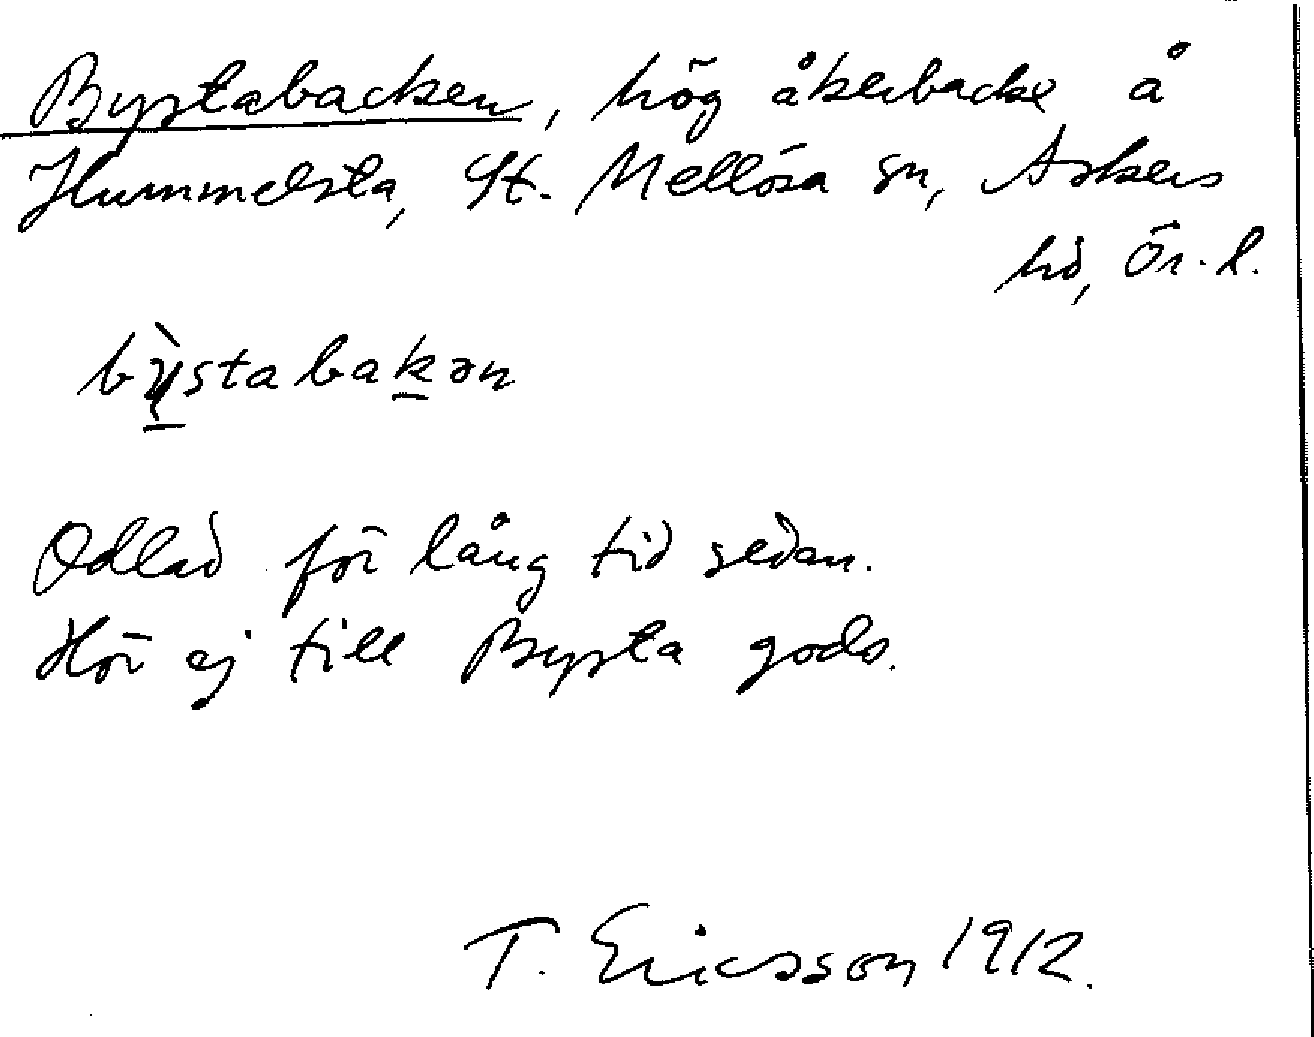 Bystabacken, hög åkerbacke å
Hummelsta, St. Mellösa sn, Askers
hd, Ör. l.
bỳstabakən
Odlad för lång tid sedan.
Hör ej till Bysta gods.
T. Ericsson 1912.